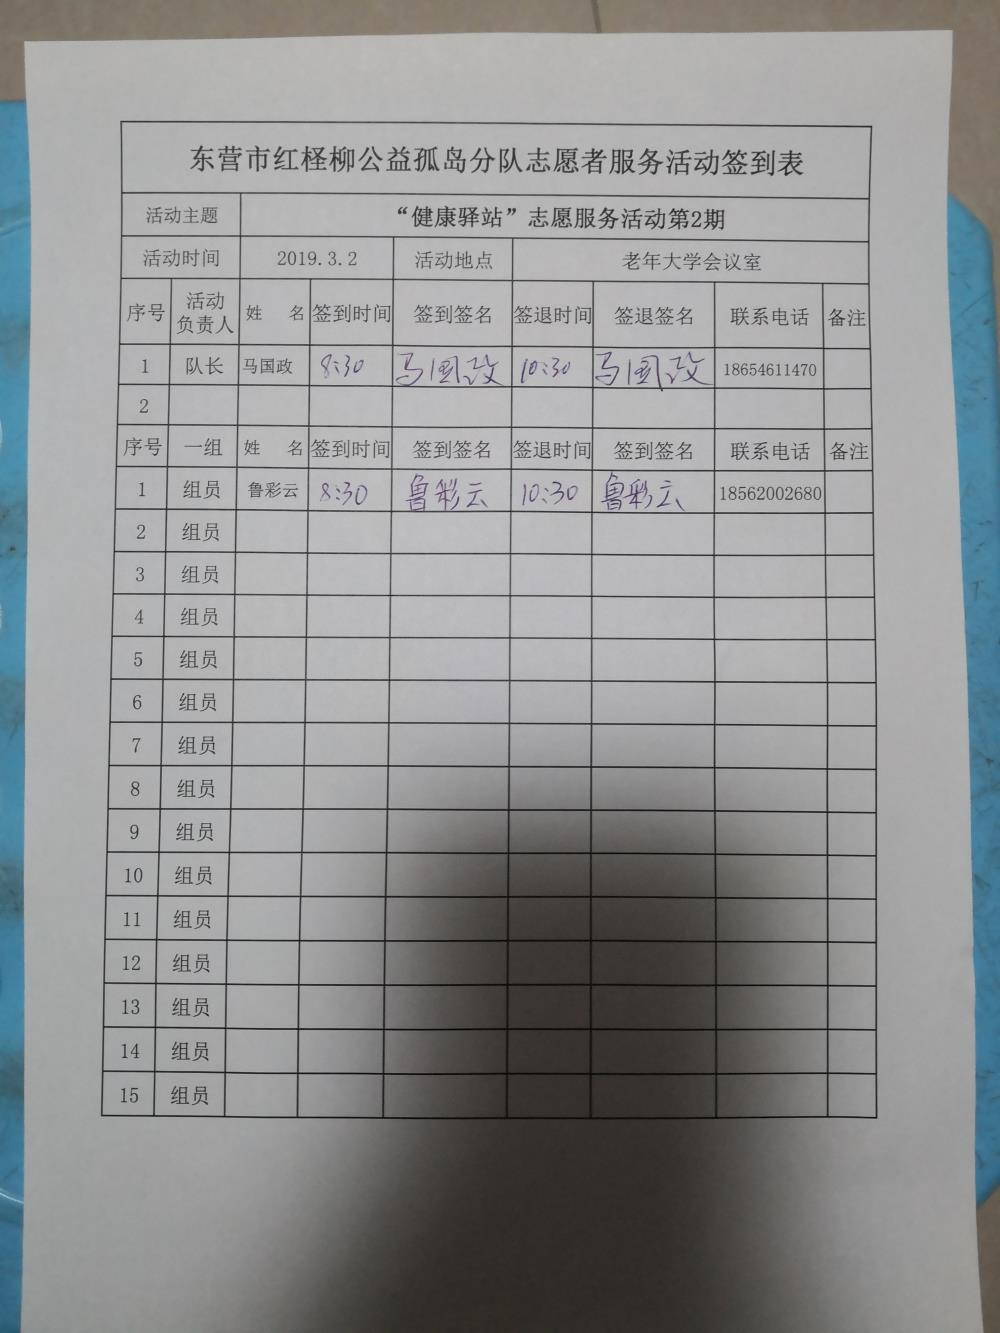 东营市红柽柳公益孤岛分队志愿者服务活动签到表
活动主题 “健康驿站”志愿服务活动第2期
活动时间 2019.3.2 活动地点 老年大学会议室
序号 活动负责人 姓 名 签到时间 签到签名 签退时间 签退签名 联系电话 备注
1 队长 马国政 8:30 马国政 10:30 马国政 18654611470
2
序号 一组 姓 名 签到时间 签到签名 签退时间 签到签名 联系电话 备注
1 组员 鲁彩云 8:30 鲁彩云 10:30 鲁彩云 18562002680
2 组员
3 组员
4 组员
5 组员
6 组员
7 组员
8 组员
9 组员
10 组员
11 组员
12 组员
13 组员
14 组员
15 组员